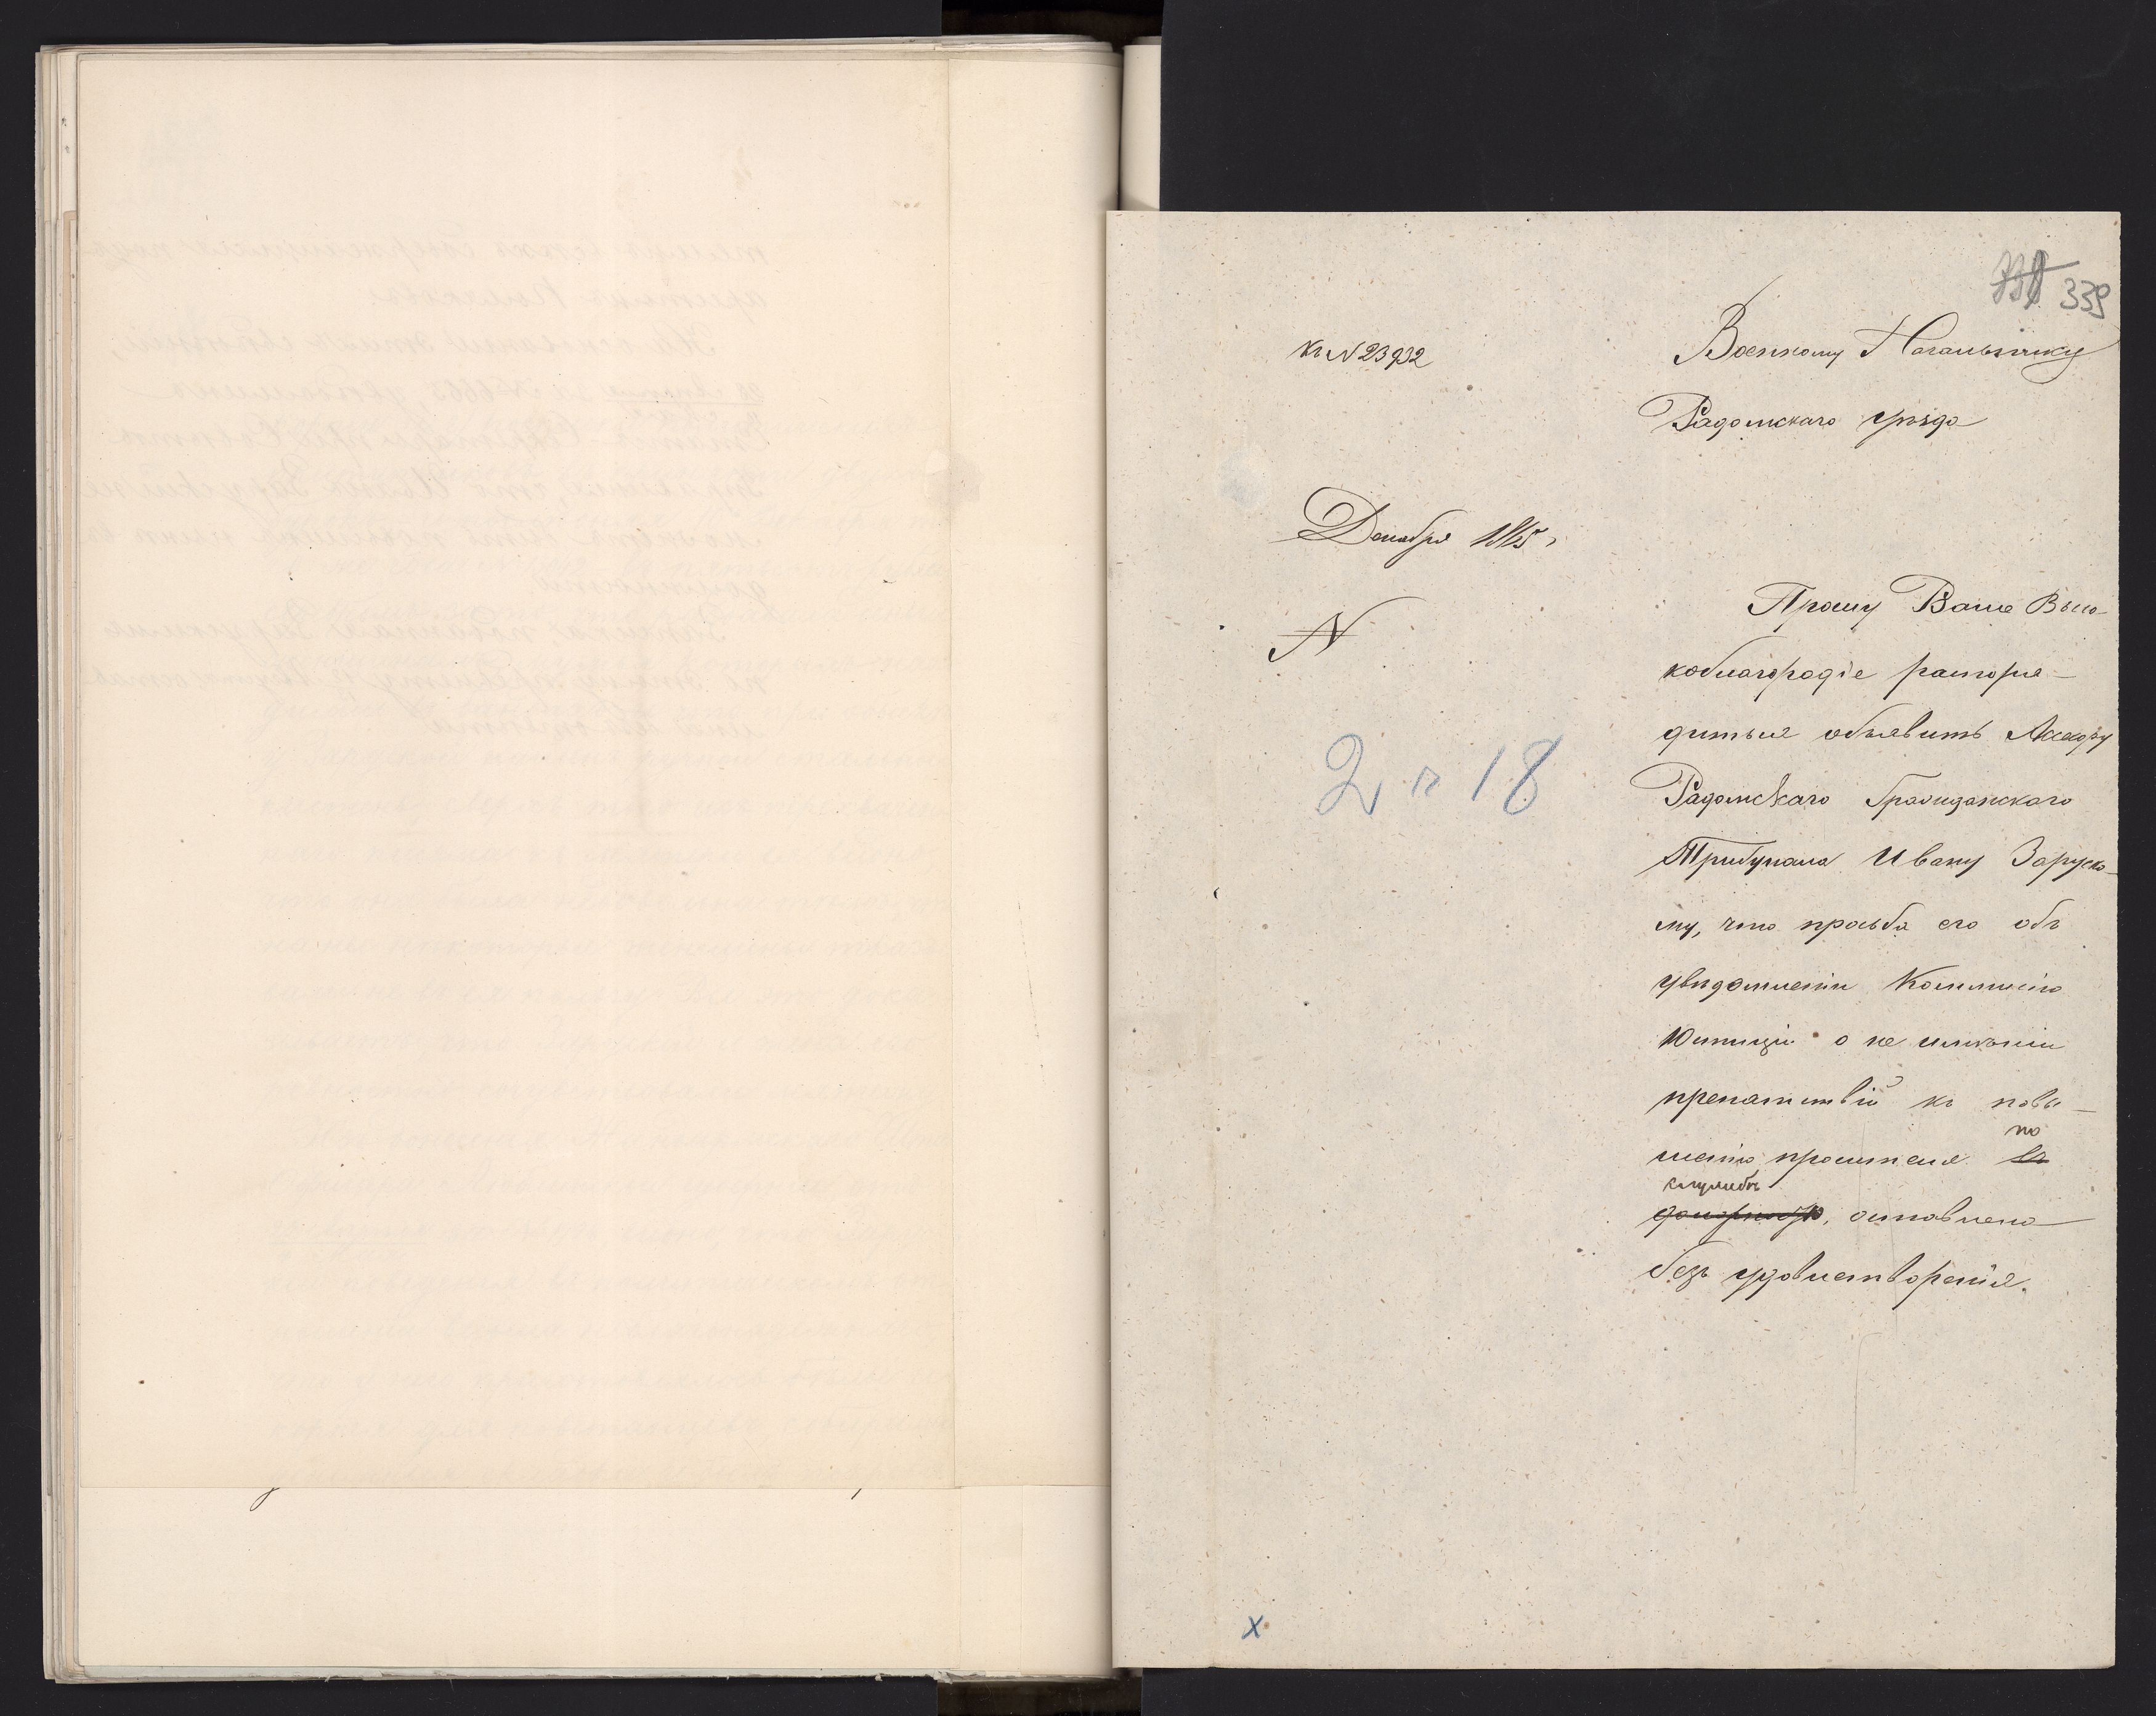 339
къ N 23932
Военному Начальнику
Радомскаго уѣзда
Декабря 1865 г
N
Прошу Ваше Высо-
коблагородіе распоря-
диться объявить
Радомскаго Гражданскаго
Трибунала Ивану Заруско-
му, что просьба его объ
увѣдомленіи Коммисію
Юстиціи о не имѣніи
препятствій къ повы-
шенію просителя по
службѣ, оставлена
безъ удовлетворенія.
2 п 18
x